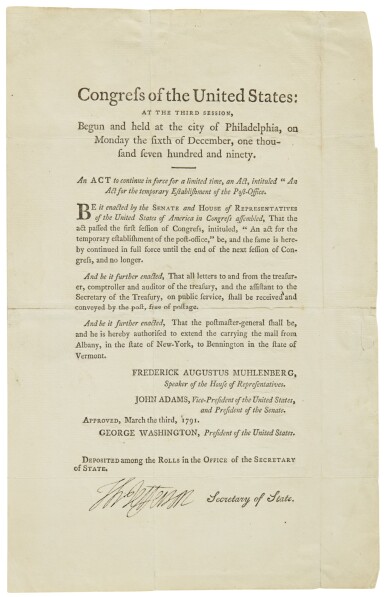 Congreſs of the United States:
AT THE THIRD SESSION,
Begun and held at the city of Philadelphia, on
Monday the ſixth of December, one thou-
ſand ſeven hundred and ninety.
An ACT to continue in force for a limited time, an Act, intituled “ An
Act for the temporary Eſtabliſhment of the Poſt-Office.
BE it enacted by the SENATE and HOUSE OF REPRESENTATIVES
of the United States of America in Congreſs aſſembled, That the
act paſſed the firſt ſeſſion of Congreſs, intituled, “ An act for the
temporary eſtabliſhment of the poſt-office,” be, and the ſame is here-
by continued in full force until the end of the next ſeſſion of Con-
greſs, and no longer.
And be it further enacted, That all letters to and from the treaſur-
er, comptroller and auditor of the treaſury, and the aſſiſtant to the
Secretary of the Treaſury, on public ſervice, ſhall be received and
conveyed by the poſt, free of poſtage.
And be it further enacted, That the poſtmaſter-general ſhall be,
and he is hereby authoriſed to extend the carrying the mail from
Albany, in the ſtate of New-York, to Bennington in the ſtate of
Vermont.
FREDERICK AUGUSTUS MUHLENBERG,
Speaker of the Houſe of Repreſentatives.
JOHN ADAMS, Vice-Preſident of the United States,
and Preſident of the Senate.
APPROVED, March the third, 1791.
GEORGE WASHINGTON, Preſident of the United States.
DEPOSITED among the ROLLS in the OFFICE of the SECRETARY
of STATE.
Th: Jefferson Secretary of State.